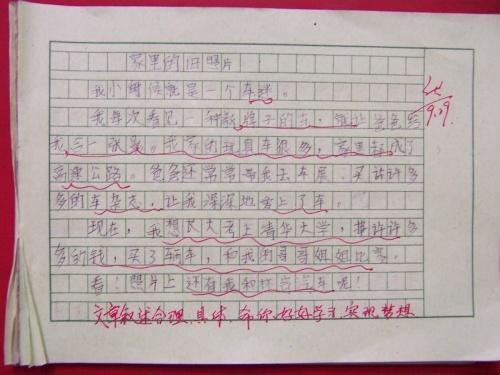 家里的旧照片
我小时候就是一个车迷。
我每次看见一种新牌子的车,就让爸爸给
我照一张像。我家的玩具车很多,家里都成了
高速公路。爸爸还常常带我去车展,买许许多
多的车杂志,让我深深地爱上了车。
现在,我想长大考上清华大学,挣许许多
多的钱,买了辆车,和我的哥哥姐姐比赛。
看!照片上还有我和爸爸学车呢!
文章叙述合理、具体,希你好好学习,实现梦想
9.29